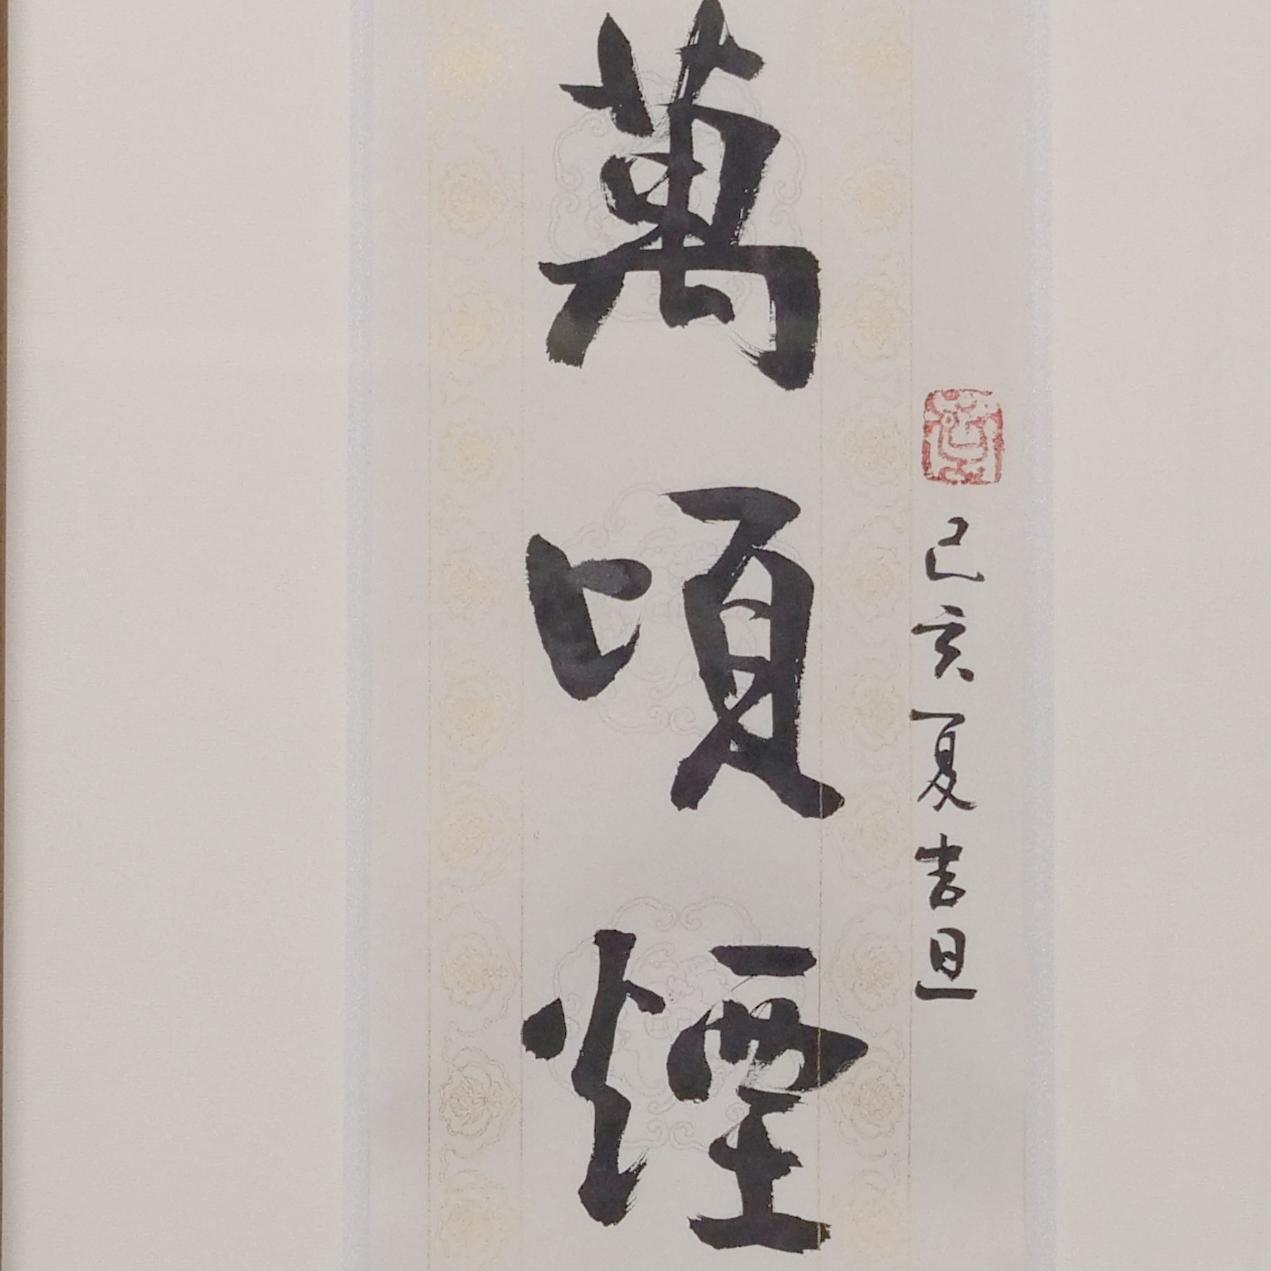 己亥夏吉旦
萬頃煙